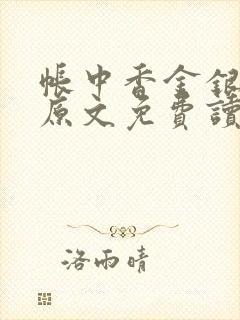 帳中香金銀
原文免費讀
洛雨晴